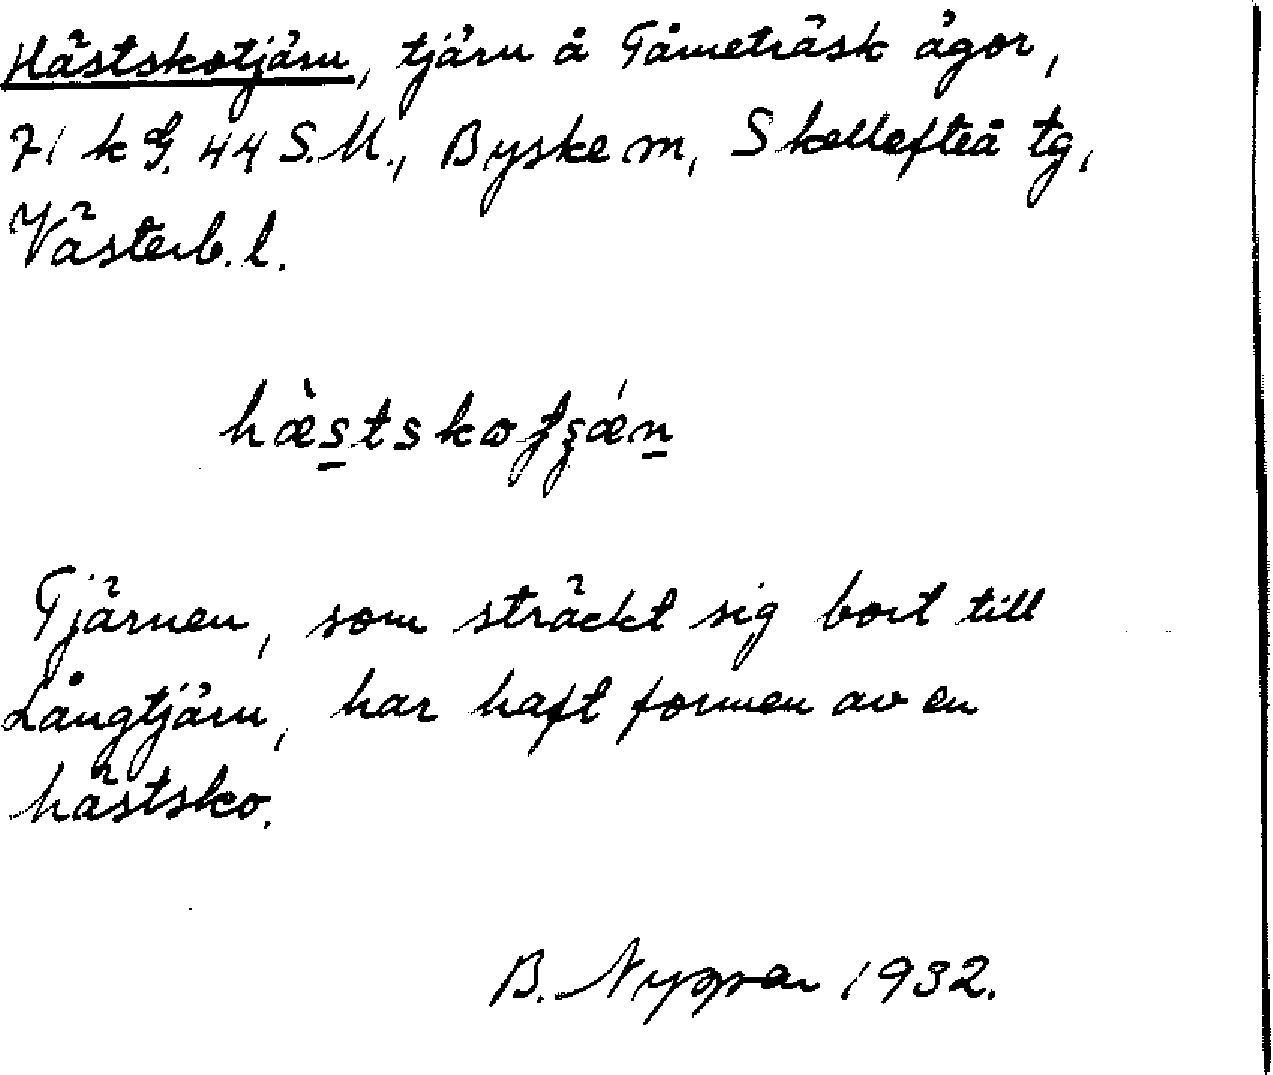 Hästskotjärn, tjärn å Tåmeträsk ägor,
71 k G. 44 S.M., Byske sn, Skellefteå tg,
Västerb. l.
hæ̀s̱tskotʃǽṉ
Tjärnen, som sträckt sig bort till
Långtjärn, har haft formen av en
hästsko.
B. 1932.